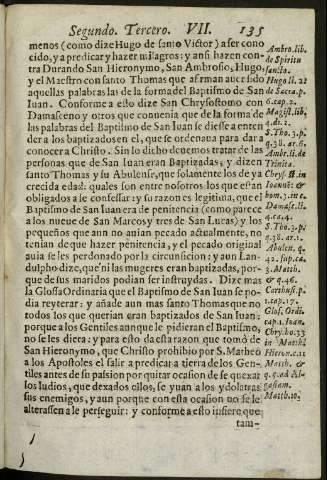 Segundo. Tercero. VII. 135
menos (como dize Hugo de santo Victor) a ser cono
cido, ya predicar y hazer milagros: y ansi hazen con-
tra Durando San Hieronymo, San Ambrosio, Hugo,
y el Maestro con santo Thomas que afirman auer sido
aquellas palabras las de la forma del Baptismo de San
Iuan. Conforme a esto dize San Chrysostomo con
Damasceno y otros que conuenia que de la forma de
las palabras del Baptismo de San Iuan se diesse a enten
der a los baptizados en el, que se ordenaua para dar a
conocer a Christo. Sin lo dicho deuemos tratar de las
personas que de San Iuan eran Baptizadas; y dizen
santo Thomas y su Abulense, que solamente los de ya
crecida edad: quales son entre nosotros los que estan
obligados a se confessar: y su razon es legitima, que el
Baptismo de San Iuan era de penitencia (como parece
a los nueue de San Marcos y tres de San Lucas) y los
pequeños que aun no auian pecado actualmente, no
tenian de que hazer penitencia, y el pecado original
auia se les perdonado por la circuncision: y aun Lan-
dulpho dize, que ni las mugeres eran baptizadas, por-
que de sus maridos podian ser instruydas. Dize mas
la Glossa Ordinaria que el Baptismo de San Iuan se po-
dia reyterar: y añade aun mas santo Thomas que no
todos los que querian eran baptizados de San Iuan:
porque a los Gentiles aunque le pidieran el Baptismo,
no se les diera: y para esto da esta razon que tomò de
San Hieronymo, que Christo prohibio por S. Matheo
a los Apostoles el salir a predicar a tierra de los Gen-
tiles antes de su passion por quitar ocasion de se quexar
los Iudios, que dexados ellos, se yuan a los ydolatras
sus enemigos, y aun porque con esta ocasion no se le
alterassen a le perseguir: y conforme a esto infiere que
tam-
Ambro. lib.
de Spiritu
sancto.
Hugo li. 2.
de Sacra. p.
6. cap. 2.
Magist. lib.
4. di. 2.
S. Tho. 3. p.
q. 38. ar. 6.
Ambr. li. de
Trinita.
Chrysost. in
Ioanne: &
hom. 3. in c.
Damasc. li.
4. ca. 4.
S. Tho. 3. p.
q. 38. ar. 1.
Abulen. q.
42. sup. ca.
3. Matth.
& q. 46.
Carthus. p.
1. cap. 17.
Glos. Ordi.
cap. 1. Ioan.
Chry. ho. 33
in Matth.
Hieron. c. 11
Matth. &
q. 5. ad Al-
gasiam.
Matth. 10.